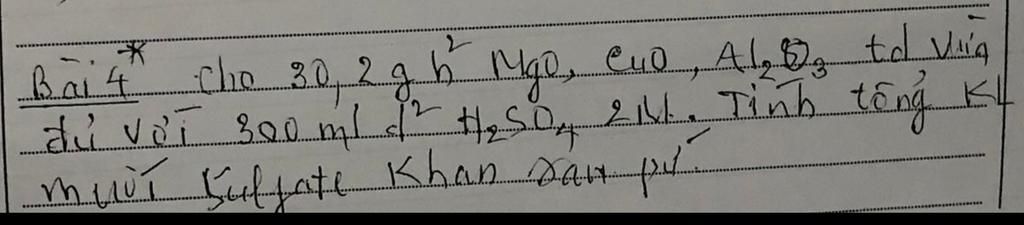 Bài 4* Cho 30,2g h² MgO, CuO, Al₂O₃ td vừa
đủ với 300 ml d² H₂SO₄ 2M. Tính tổng KL
muối Sulfate Khan sau pứ.